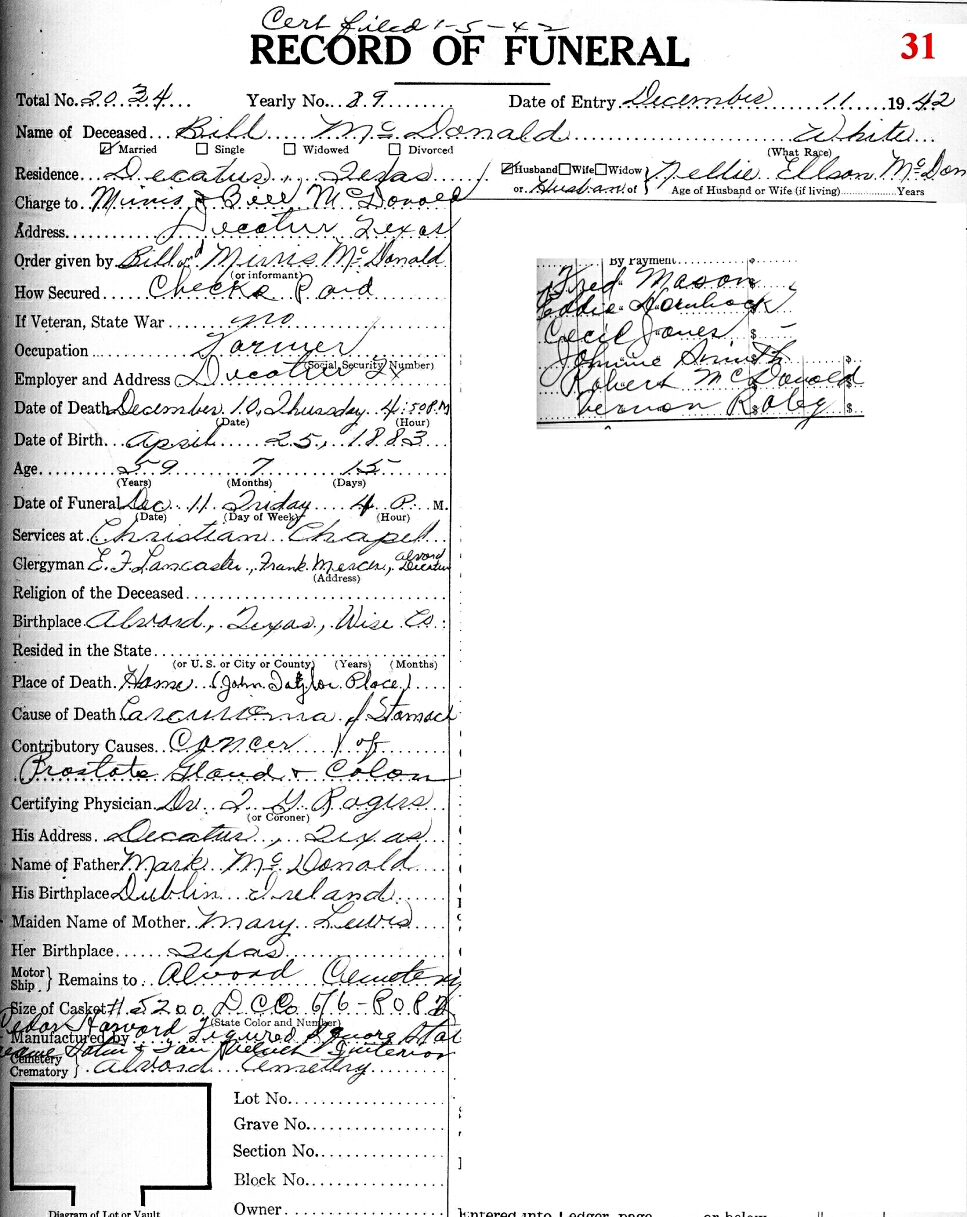 Cert filed 1-5-42
RECORD OF FUNERAL
31
Total No. 2034 Yearly No. 89 Date of Entry December 11 1942
Name of Deceased Bill McDonald White
Married Single Widowed Divorced (What Race)
Residence Decatur, Texas Husband Wife Widow or Husban of Nellie Ellson McDon
Age of Husband or Wife (if living) Years
Charge to Minis & Bill McDonald
Address Decatur Texas
Order given by Bill & Minis McDonald
(or informant)
How Secured Checks Paid
If Veteran, State War no
Occupation Farmer
(Social Security Number)
Employer and Address Decatur Tx
Date of Death December 10, Thursday 4:50 P.M
(Date) (Hour)
Date of Birth April 25, 1883
Age 59 7 15
(Years) (Months) (Days)
Date of Funeral Dec 11 Friday 4 P. M.
(Date) (Day of Week) (Hour)
Services at Christian Chapel
Clergyman E. F. Lancaster, Frank Mercer, Alvord Decatur
(Address)
Religion of the Deceased
Birthplace Alvord, Texas, Wise Co.
Resided in the State
(or U. S. or City or County) (Years) (Months)
Place of Death Home (John Taylor Place)
Cause of Death Carcinoma of Stomach
Contributory Causes Cancer of
Prostate Gland & Colon
Certifying Physician Dr. T. G. Rogers
(or Coroner)
His Address Decatur, Texas
Name of Father Mark McDonald
His Birthplace Dublin Ireland
Maiden Name of Mother Mary Lewis
Her Birthplace Texas
Motor Ship. } Remains to Alvord Cemetery
Size of Casket # 5200 D.C.Co. 6/6 - POPD
(State Color and Number)
Cedar Harvord Figured Square Star
Manufactured by
Satin & Tan Interior
Cemetery
Crematory } Alvord Cemetery
Lot No.
Grave No.
Section No.
Block No.
Owner
Diagram of Lot or Vault
By Payment $
Fred Mason
Eddie Hornback
Cecil Jones $
Johnnie Smith $
Robert McDonald $
Vernon Raley $
Entered into Ledger, page or below